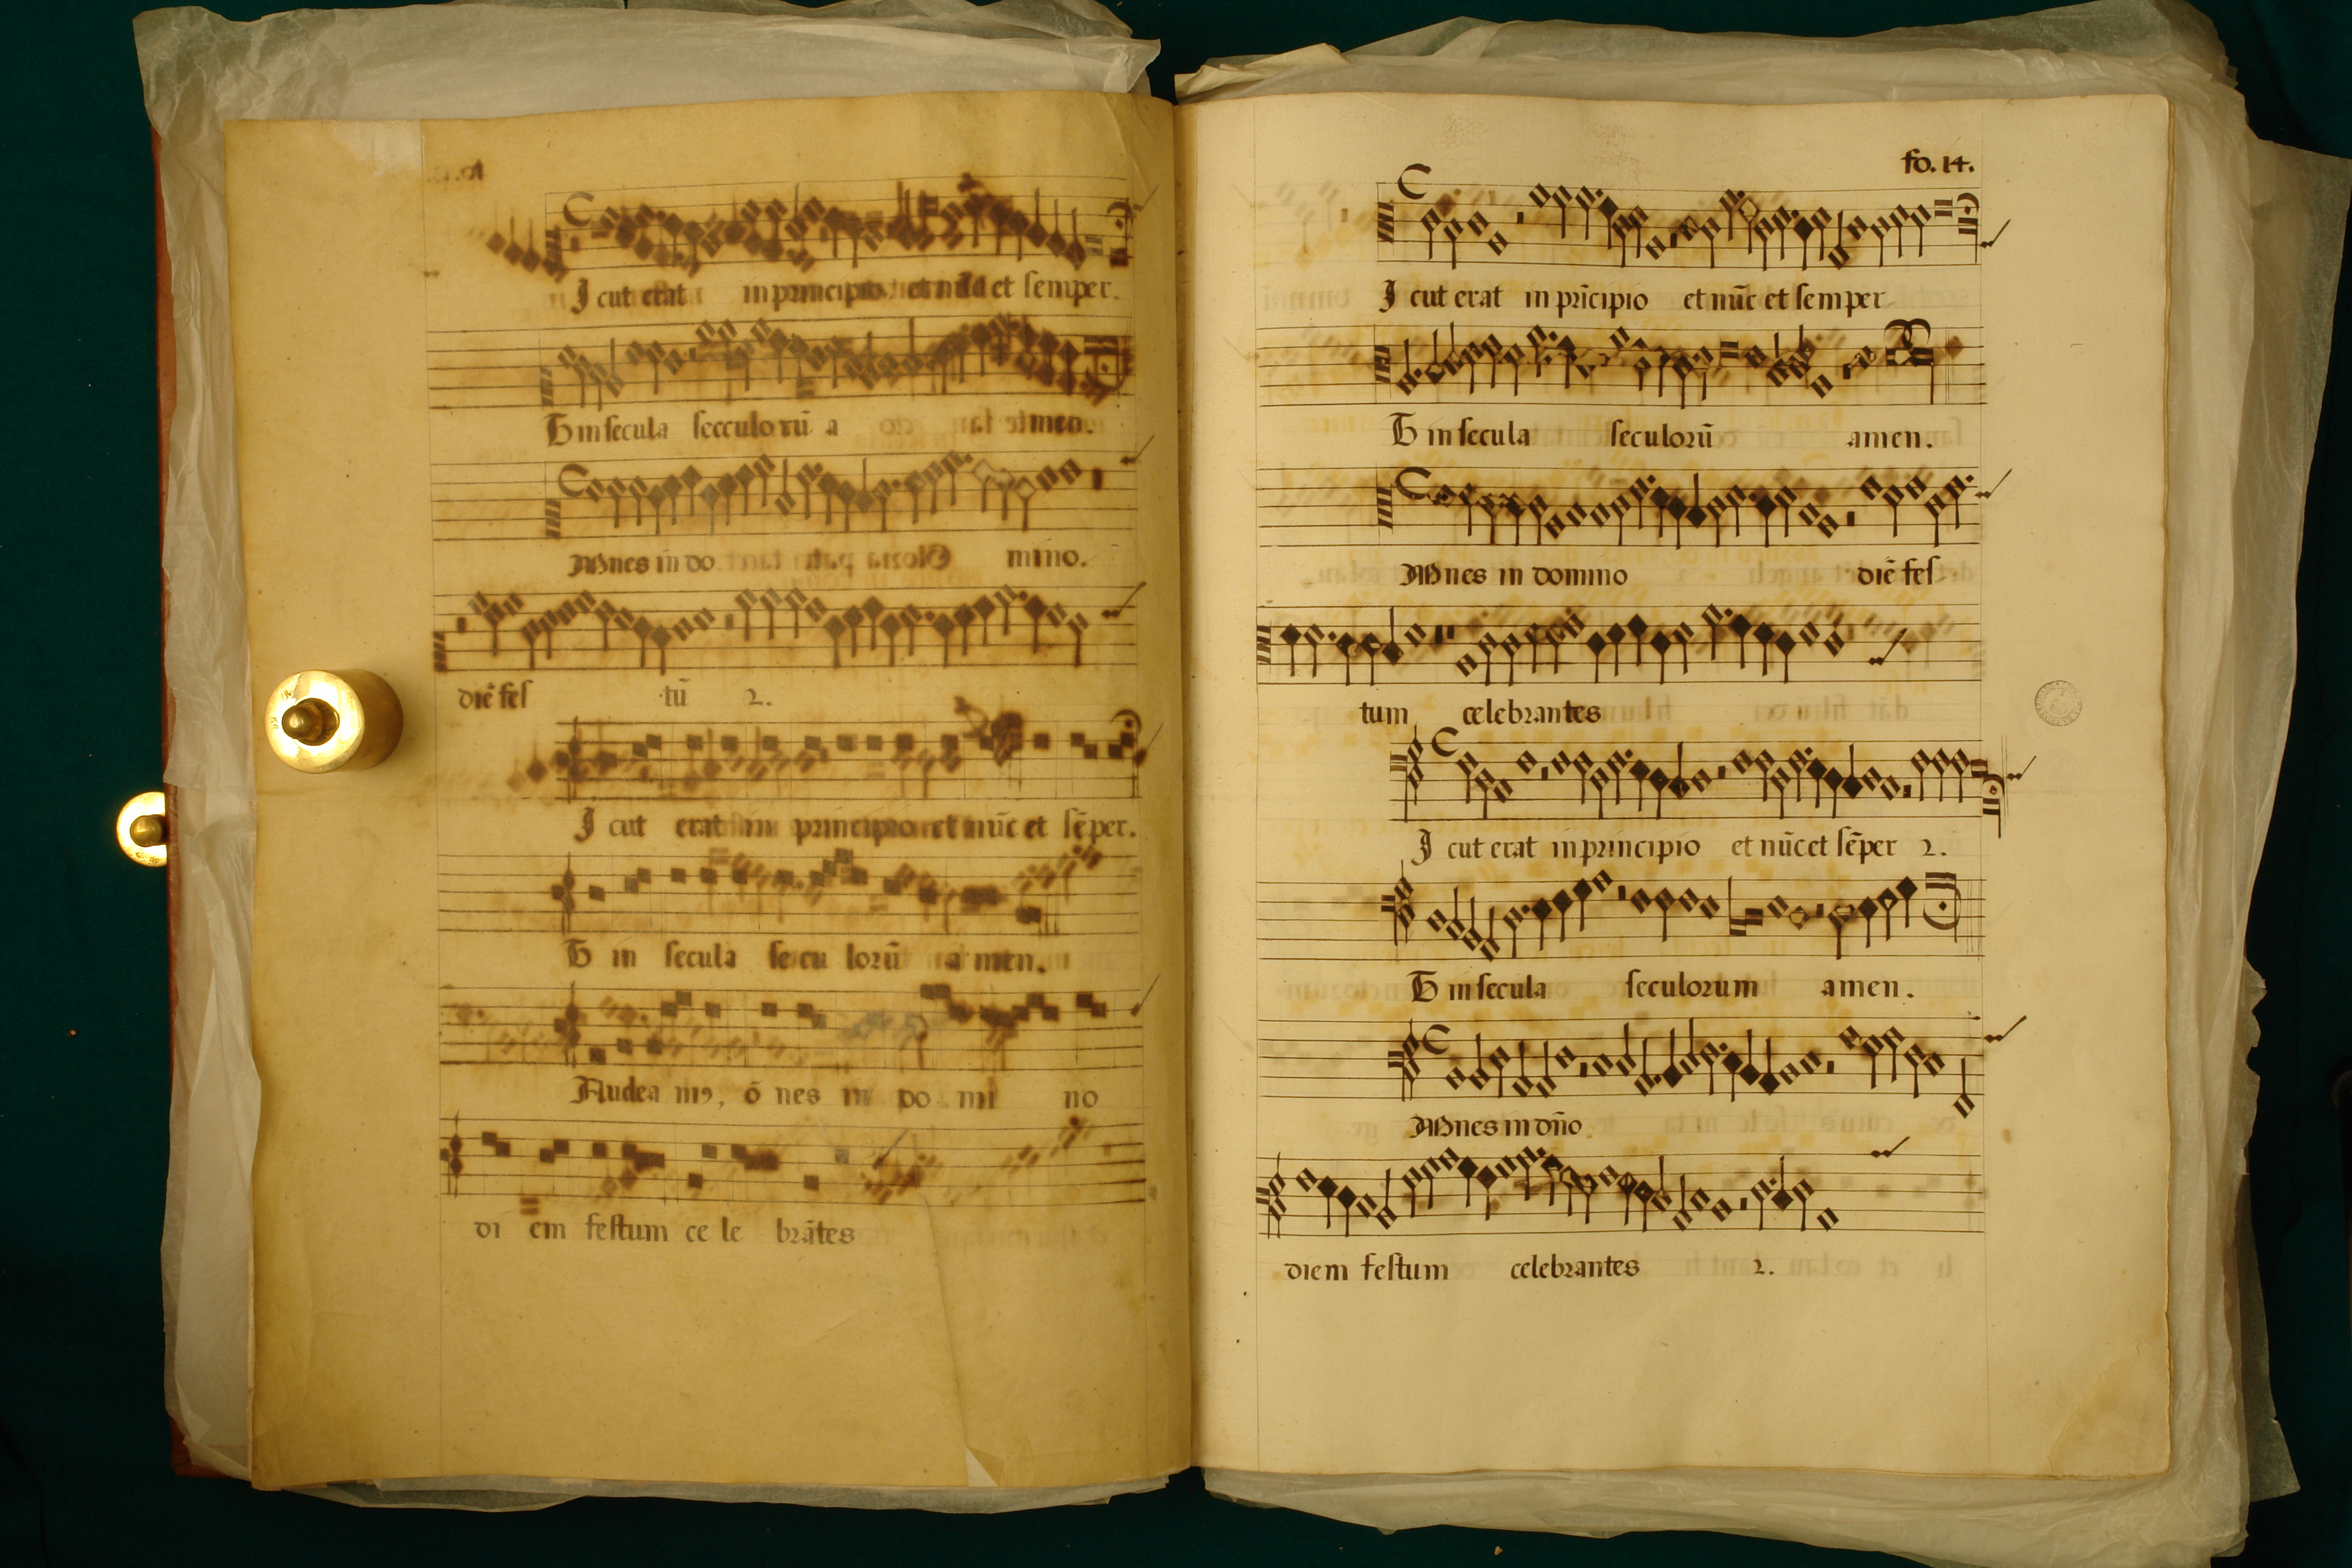 I cut erat in principio et nūc et semper.
Et in secula secculorū a men.
Omnes in do mino.
diē fes tū 2.
I cut erat in principio et nūc et sēper.
Et in secula secu lorū a men.
Audea mꝰ, ō nes in do mi no
di em festum ce le brātes
fo. 14.
I cut erat in prīcipio et nūc et semper
Et in secula seculorū amen.
Omnes in domino diē fes
tum celebrantes
I cut erat in principio et nūc et sēper 2.
Et in secula seculorum amen.
Omnes in dño
diem festum celebrantes 2.